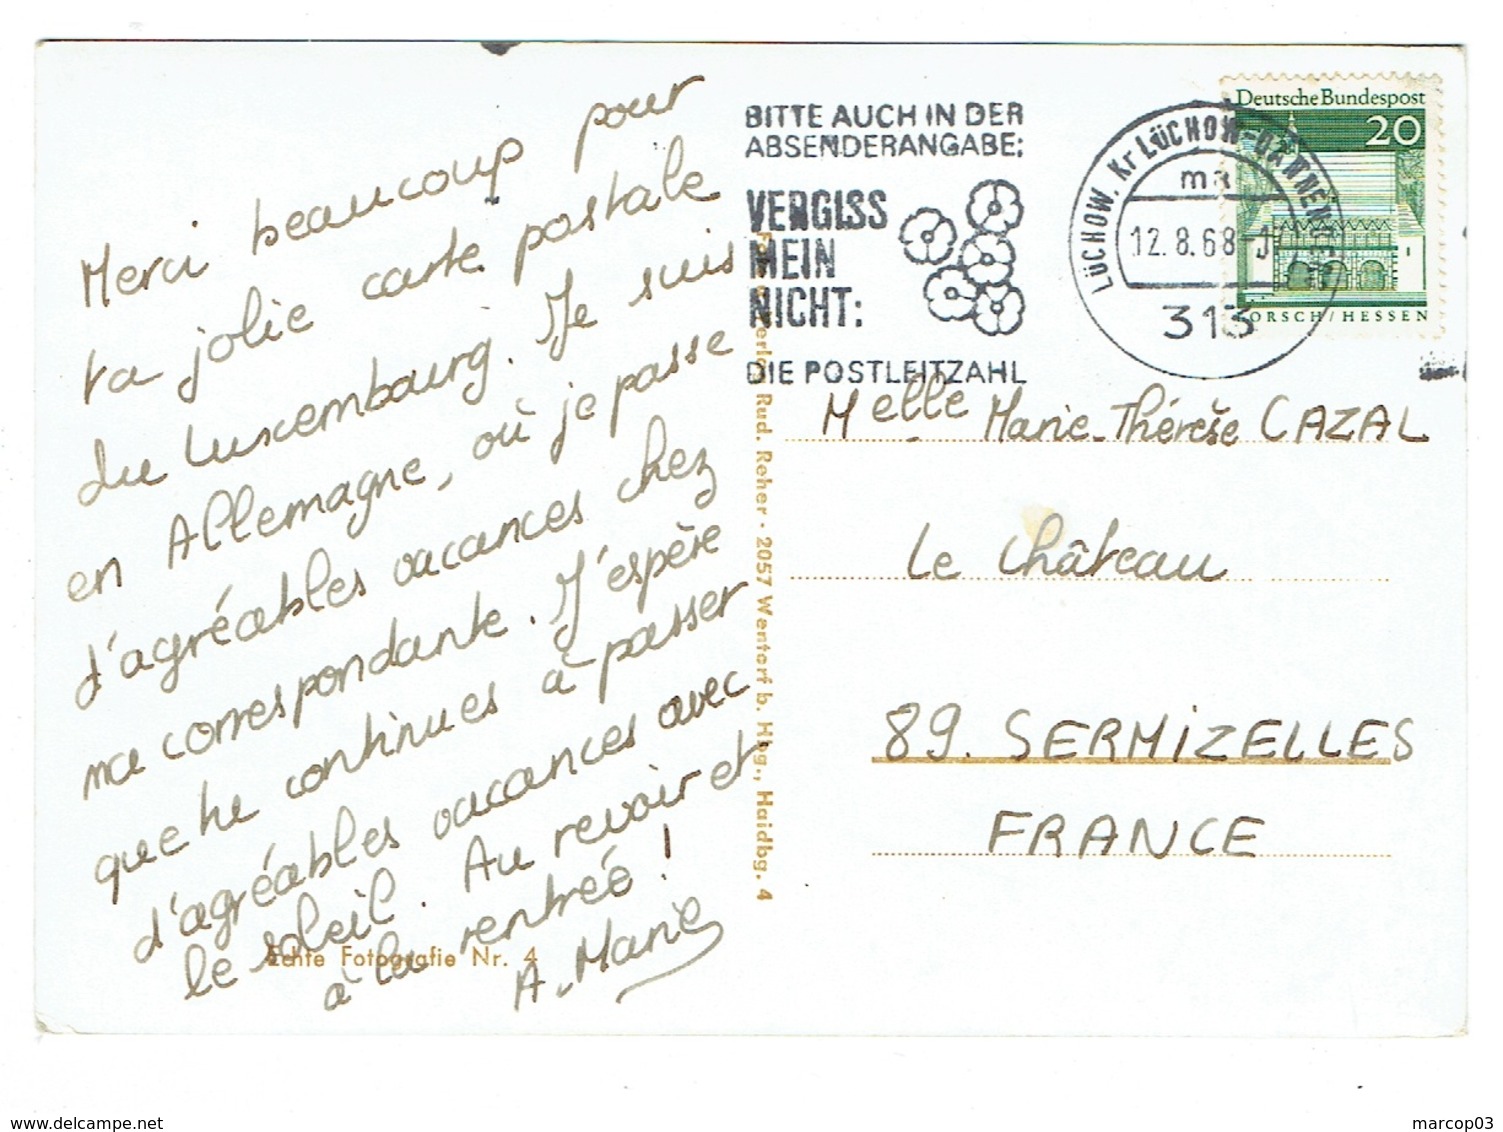 Merci beaucoup pour
ta jolie carte postale
du Luxembourg. Je suis
en Allemagne, où je passe
d'agréables vacances chez
ma correspondante. J'espère
que tu continues à passer
d'agréables vacances avec
le soleil. Au revoir et
à la rentrée !
A. Marie
Echte Fotografie Nr. 4
Rud. Reher · 2057 Wentorf b. Hbg., Haidbg. 4
BITTE AUCH IN DER
ABSENDERANGABE:
VERGISS
MEIN
NICHT:
DIE POSTLEITZAHL
LÜCHOW, Kr LÜCHOW-DANNENBERG
ma
12.8.68-1
313
Deutsche Bundespost
20
LORSCH/HESSEN
Melle Marie-Thérèse CAZAL
Le Château
89. SERMIZELLES
FRANCE
www.delcampe.net
marcop03